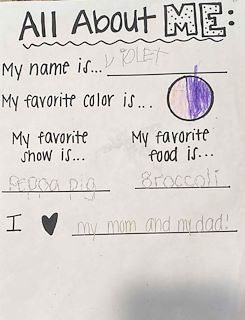 All About ME:
My name is... VIOLET
My favorite color is...
My favorite show is... My favorite food is...
Peppa pig Broccoli
I ♥ my mom and my dad!